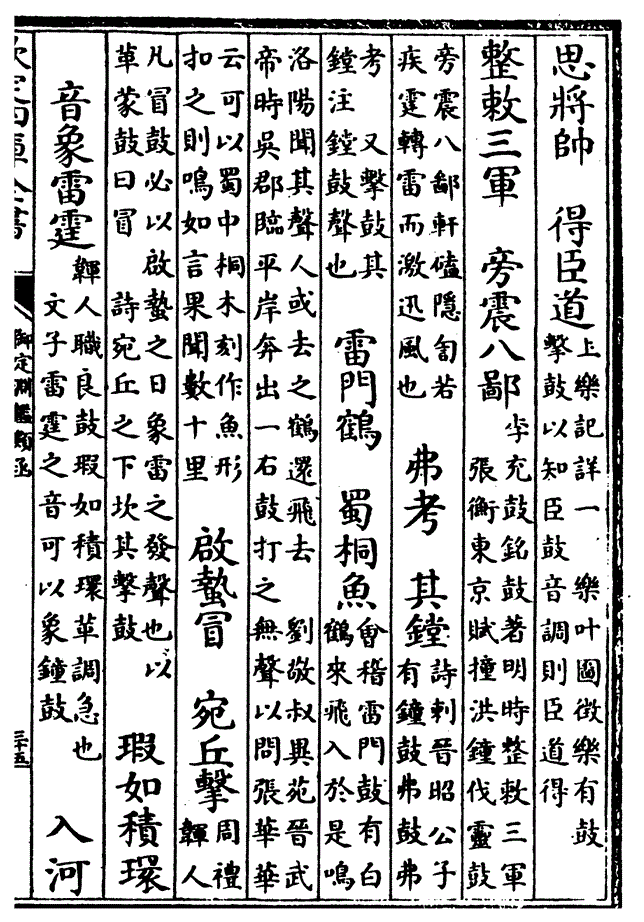 思將帥　得臣道上樂記詳一　樂叶圖徵樂有鼓
擊鼓以知臣鼓音調則臣道得
整敕三軍　旁震八鄙李充鼓銘鼓著明時整敕三軍
張衡東京賦撞洪鐘伐靈鼓
旁震八鄙軒磕隱訇若
疾霆轉雷而激迅風也　弗考　其鏜詩刺晉昭公子
有鐘鼓弗鼓弗
考　又擊鼓其
鏜注鏜鼓聲也　雷門鶴　蜀桐魚會稽雷門鼓有白
鶴來飛入於是鳴
洛陽聞其聲人或去之鶴還飛去　劉敬叔異苑晉武
帝時吳郡臨平岸奔出一右鼓打之無聲以問張華華
云可以蜀中桐木刻作魚形
扣之則鳴如言果聞數十里　啟蟄冒　宛丘擊周禮
韗人
凡冒鼓必以啟蟄之日象雷之發聲也以
革蒙鼓曰冒　詩宛丘之下坎其擊鼓　瑕如積環
音象雷霆韗人職良鼓瑕如積環革調急也
文子雷霆之音可以象鐘鼓　入河
欽定四庫全書
御定淵鑑類函
三十五